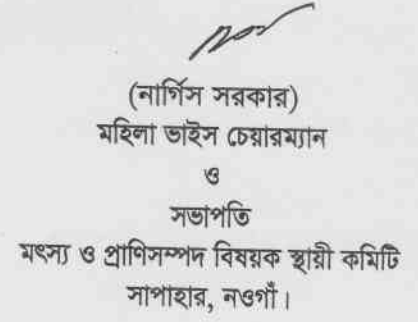 (নার্গিস সরকার)
মহিলা ভাইস চেয়ারম্যান
ও
সভাপতি
মৎস্য ও প্রাণিসম্পদ বিষয়ক স্থায়ী কমিটি
সাপাহার, নওগাঁ।